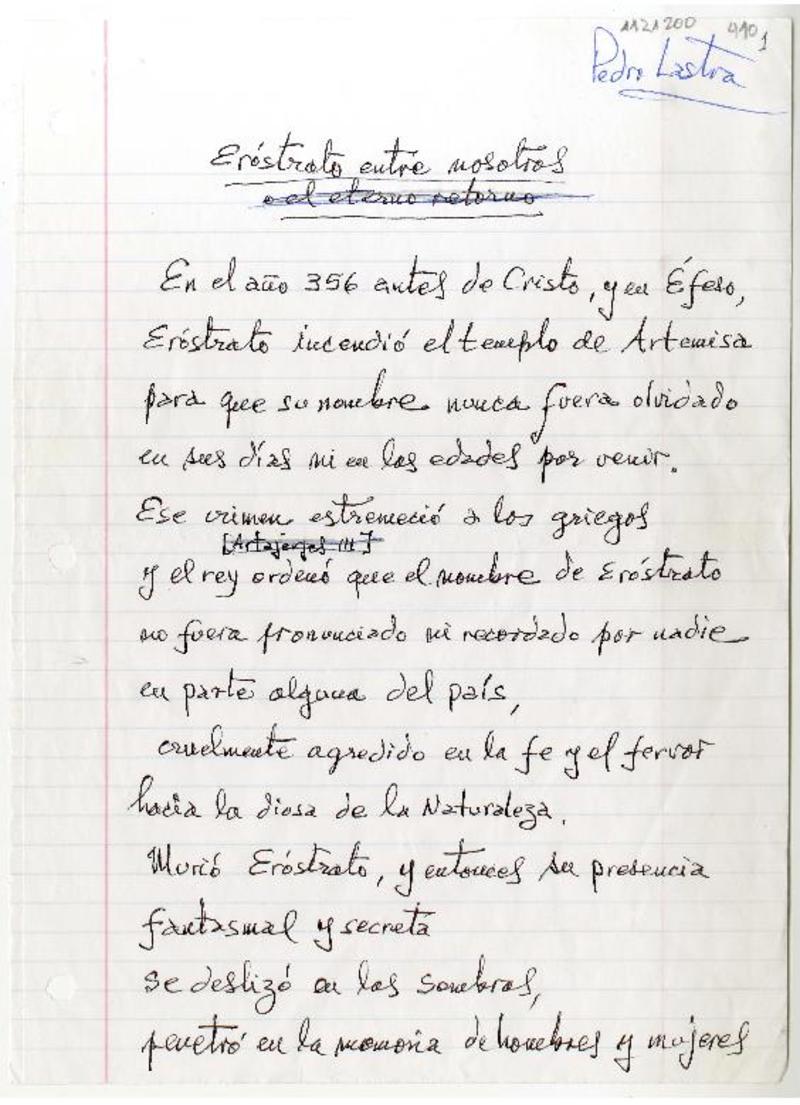 1121200 440 1
Pedro Lastra
Eróstrato entre nosotros
o el eterno retorno
En el año 356 antes de Cristo, y en Éfeso,
Eróstrato incendió el templo de Artemisa
para que su nombre nunca fuera olvidado
en sus días ni en las edades por venir.
Ese crimen estremeció a los griegos
[Artajerjes III]
y el rey ordenó que el nombre de Eróstrato
no fuera pronunciado ni recordado por nadie
en parte alguna del país,
cruelmente agredido en la fe y el fervor
hacia la diosa de la Naturaleza.
Murió Eróstrato, y entonces su presencia
fantasmal y secreta
se deslizó en las sombras,
penetró en la memoria de hombres y mujeres